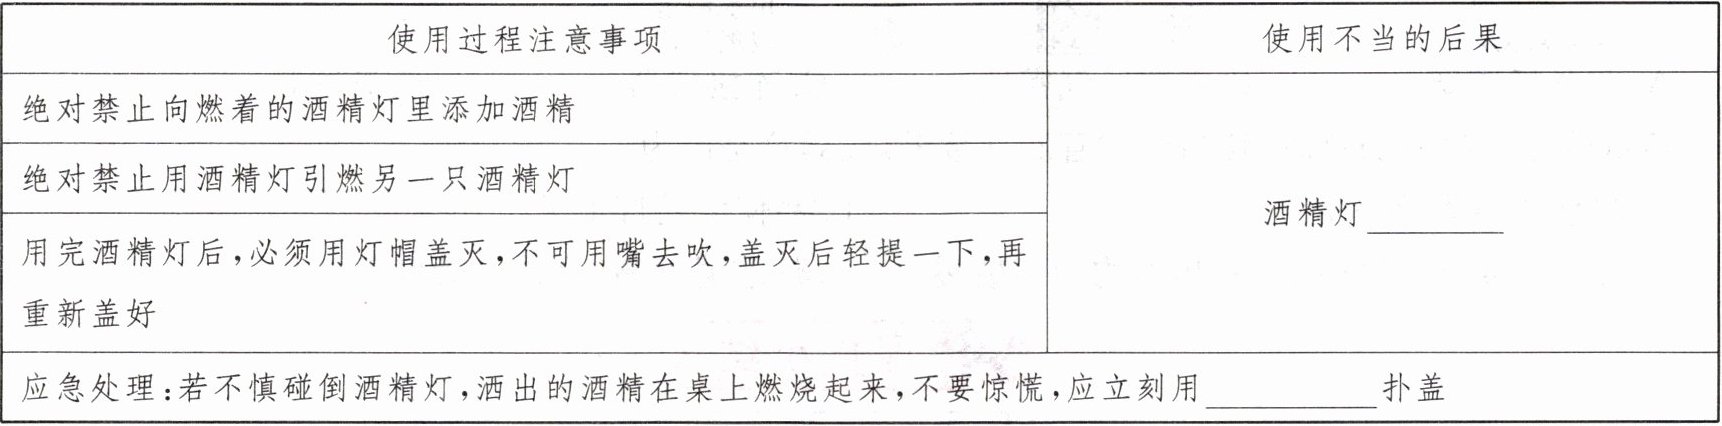 使用过程注意事项
使用不当的后果
绝对禁止向燃着的酒精灯里添加酒精
绝对禁止用酒精灯引燃另一只酒精灯
用完酒精灯后,必须用灯帽盖灭,不可用嘴去吹,盖灭后轻提一下,再
重新盖好
酒精灯________
应急处理:若不慎碰倒酒精灯,洒出的酒精在桌上燃烧起来,不要惊慌,应立刻用__________扑盖